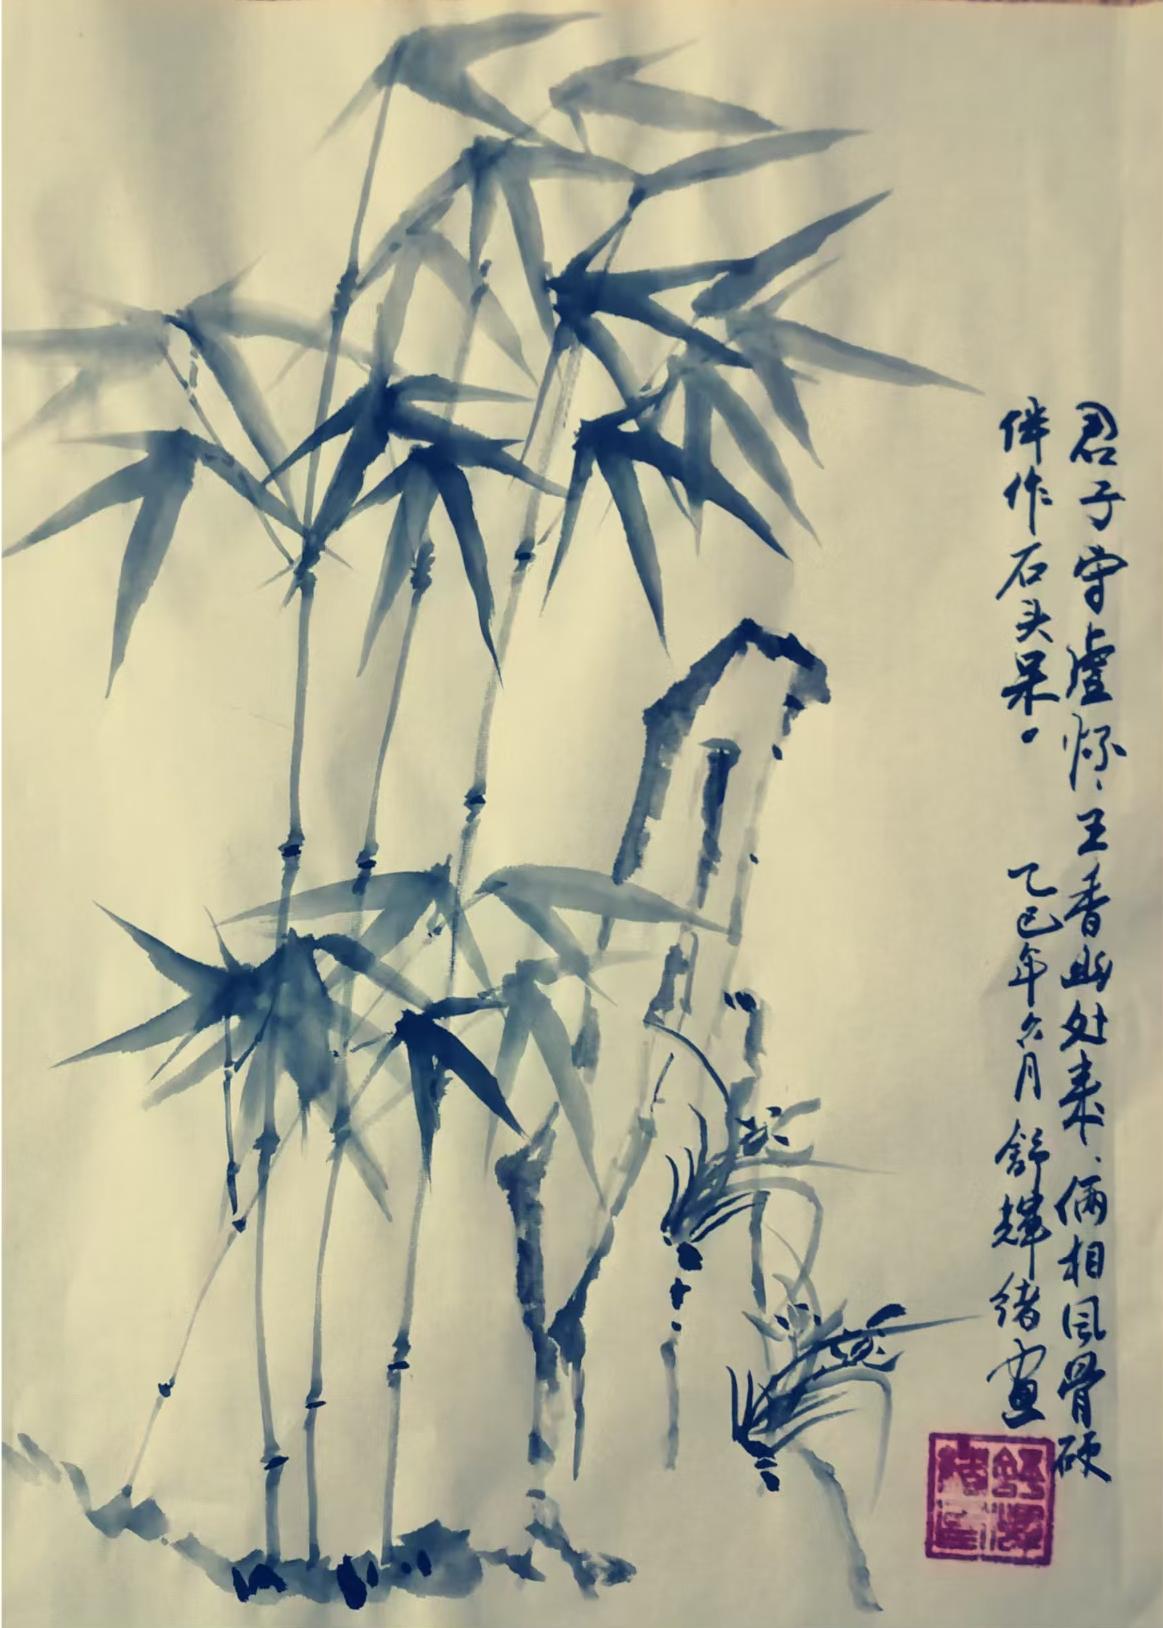 君子守虚怀、王香幽处来、俩相风骨硬
伴作石头呆。 乙巳年六月 舒辉绪画